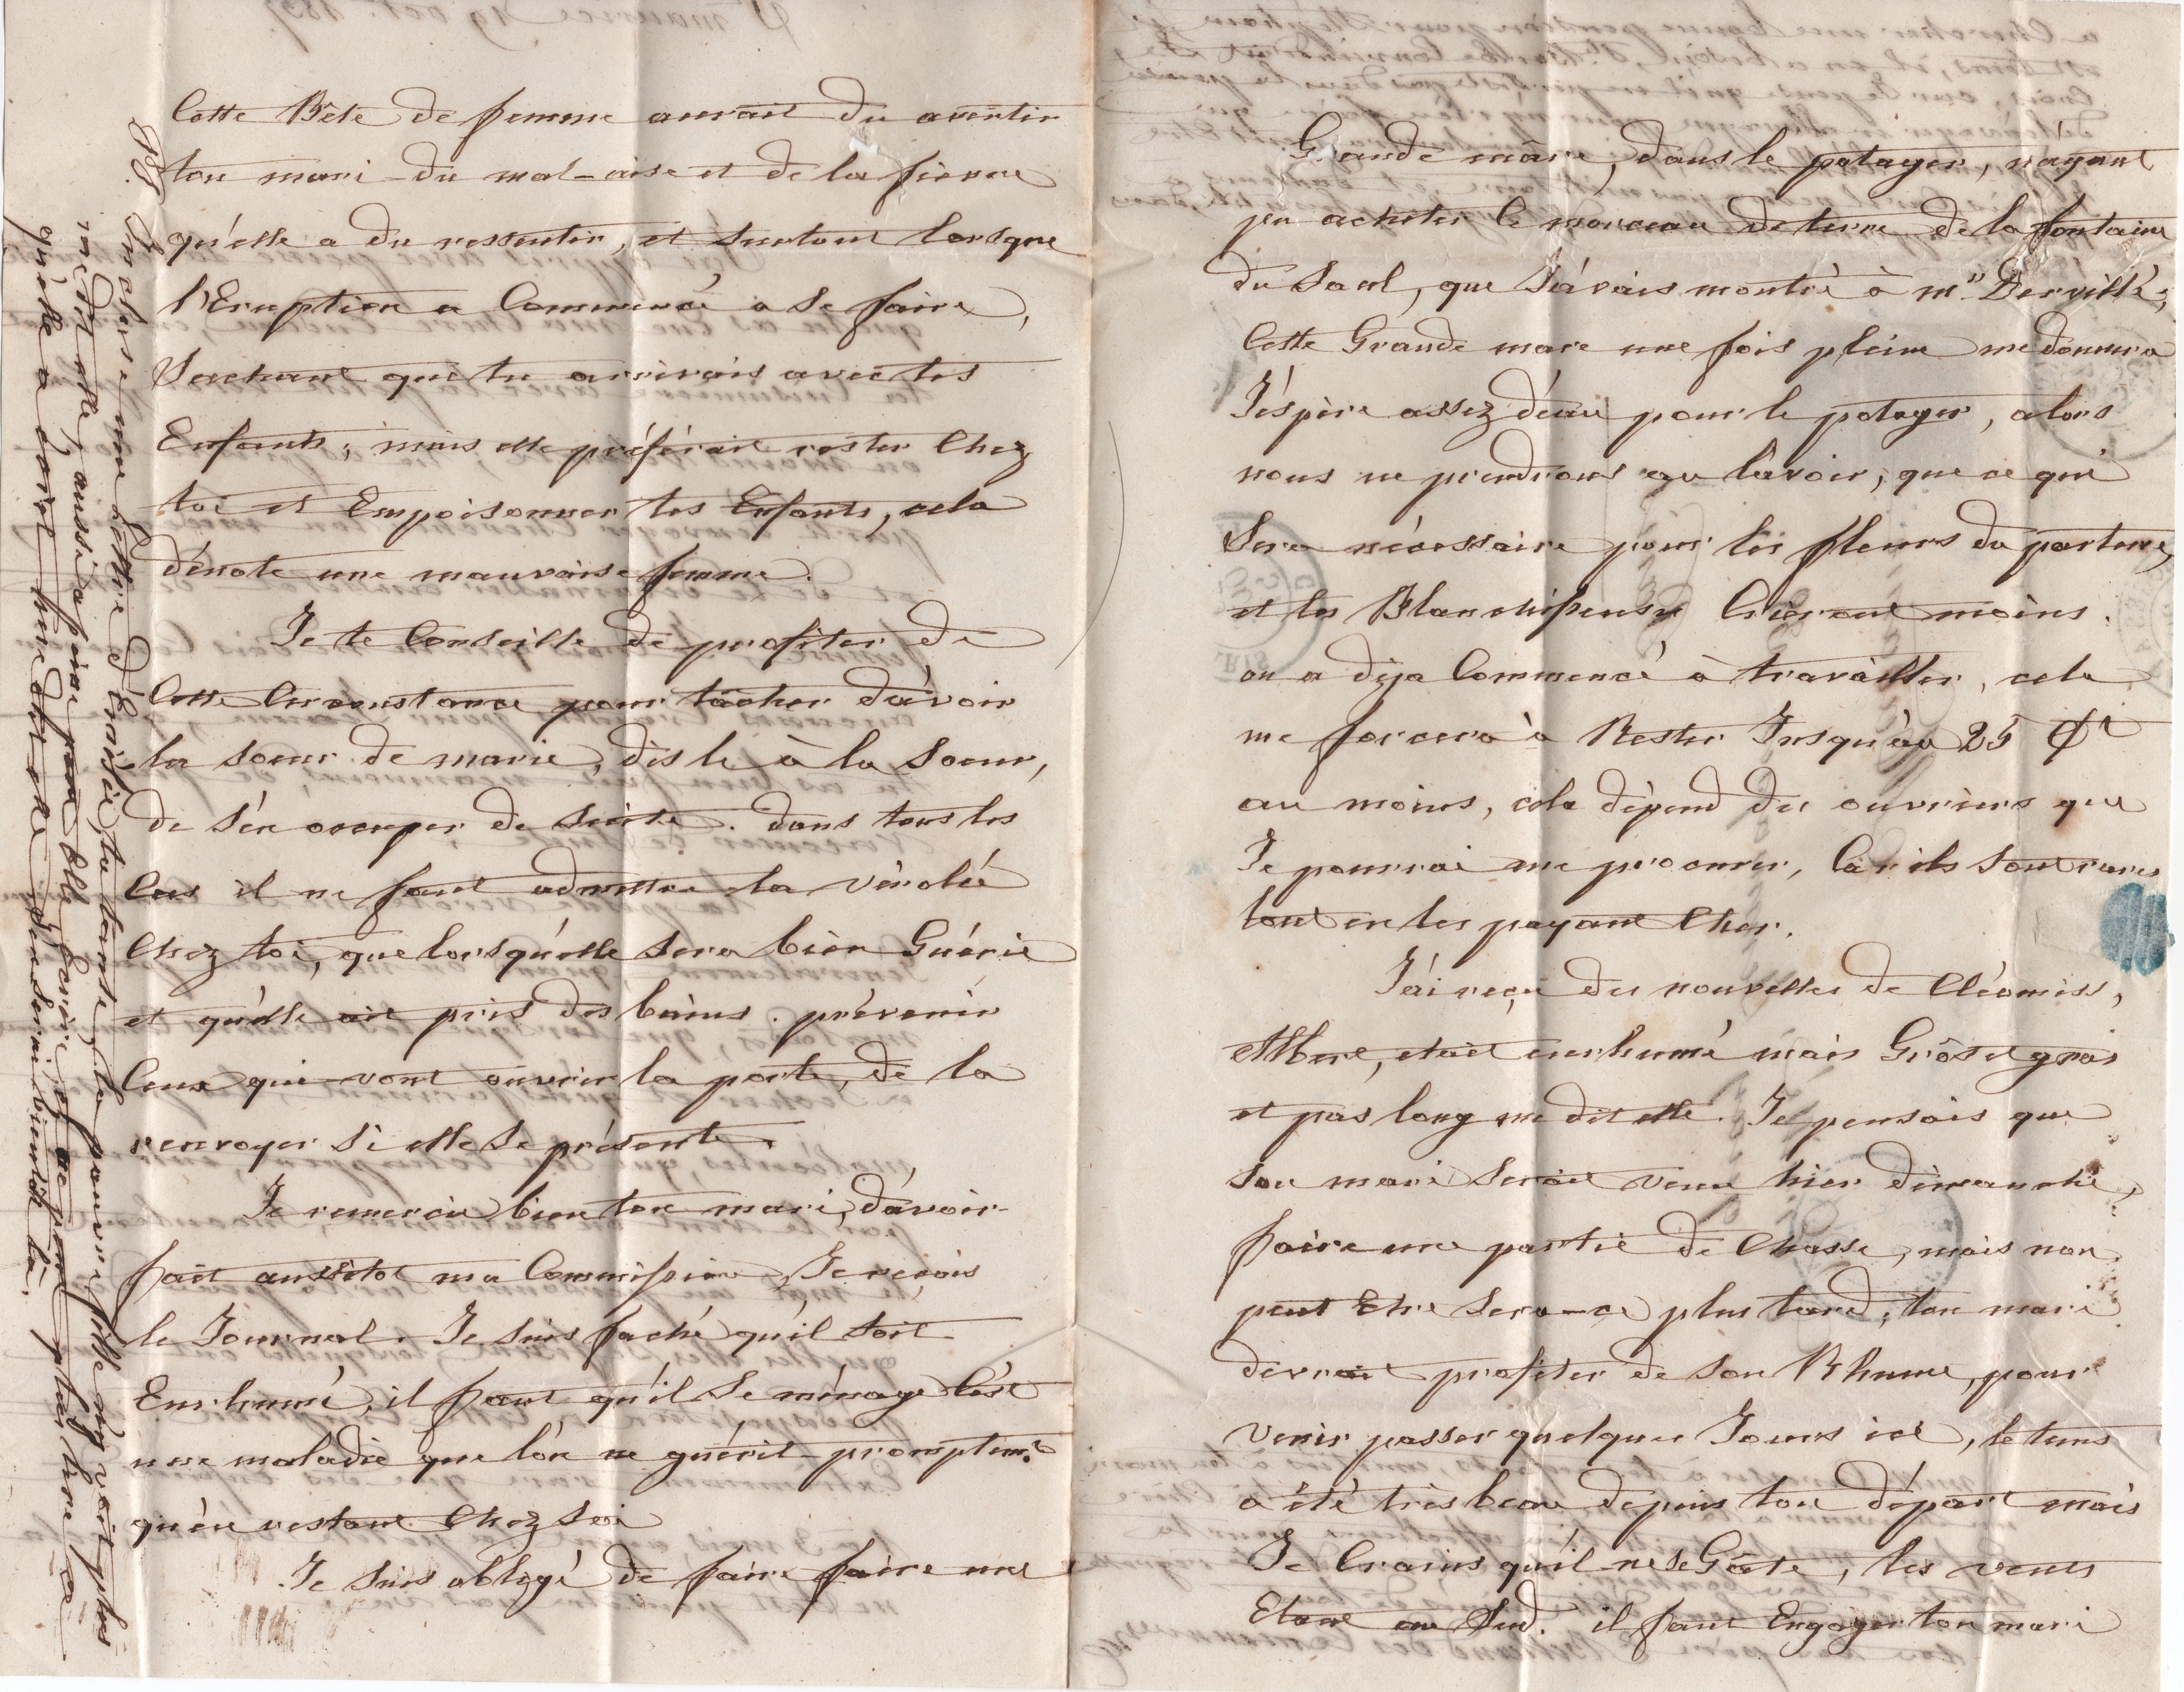 Cette Bête de femme aurait du avertir
ton mari du mal-aise et de la fievre
qu'elle a du ressentir, et surtout lorsque
l'Eruption a Commencé a se faire,
Sachant que tu arrivais avec tes
Enfants; mais elle préférait rester Chez
toi et Empoisonner tes Enfants, cela
dénote une mauvaise femme.
Je te Conseille de profiter de
Cette Circonstance pour tâcher d'avoir
la soeur de marie, dis le à la Soeur,
de s'en occuper de suite. dans tous les
Cas il ne faut admettre la vérolée
Chez toi, que lorsqu'elle sera bien Guérie
et qu'elle ait pris des bains. prévenir
Ceux qui vont ouvrir la porte, de la
renvoyer Si elle Se présente.
Je remercie bien ton mari, d'avoir
fait aussitot ma Commission, Je reçois
le Journal. Je suis faché qu'il soit
Enrhumé, il faut qu'il Se ménage C'est
une maladie que l'on ne guérit promptemt
qu'en restant Chez Soi
Je suis obligé de faire faire une
PS Incluse une Lettre d'Emélie, ta tante, la pauvre fille n'y voit plus
me dit elle, aussi a peine peut Elle Ecrire, et ne peut plus lire ce
qu'elle a écrit, me dit elle Je Serai bientôt là.
Grande mare, dans le potager, n'ayant
pu acheter le morceau de terre de la fontaine
du Saul, que J'avais montré à mr Derville;
Cette Grande mare une fois pleine me donnera
J'éspère assez d'eau pour le potager, alors
nous ne prendrons au lavoir, que ce qui
Sera nécessaire pour les fleurs du parterre,
et les Blanchisseuses Crieront moins.
on a déja Commencé à travailler, cela
me forcera à Rester Jusqu'au 25
au moins, cela dépend des ouvriers que
Je pourrai me procurer, Car ils sont rares
tout en les payant Cher.
J'ai reçu des nouvelles de Cléomiss,
Albert, etait enrhumé mais Gros et gras
et pas long me dit elle. Je pensais que
son mari serait venu hier dimanche,
faire une partie de Chasse, mais non
peut Etre Sera-ce plus tard, ton mari
devrait profiter de son Rhume, pour
venir passer quelques Jours ici, le tems
a été très beau depuis ton départ mais
Je Crains qu'il ne se Gâte, les vents
Etant au Sud. il faut Engager ton mari